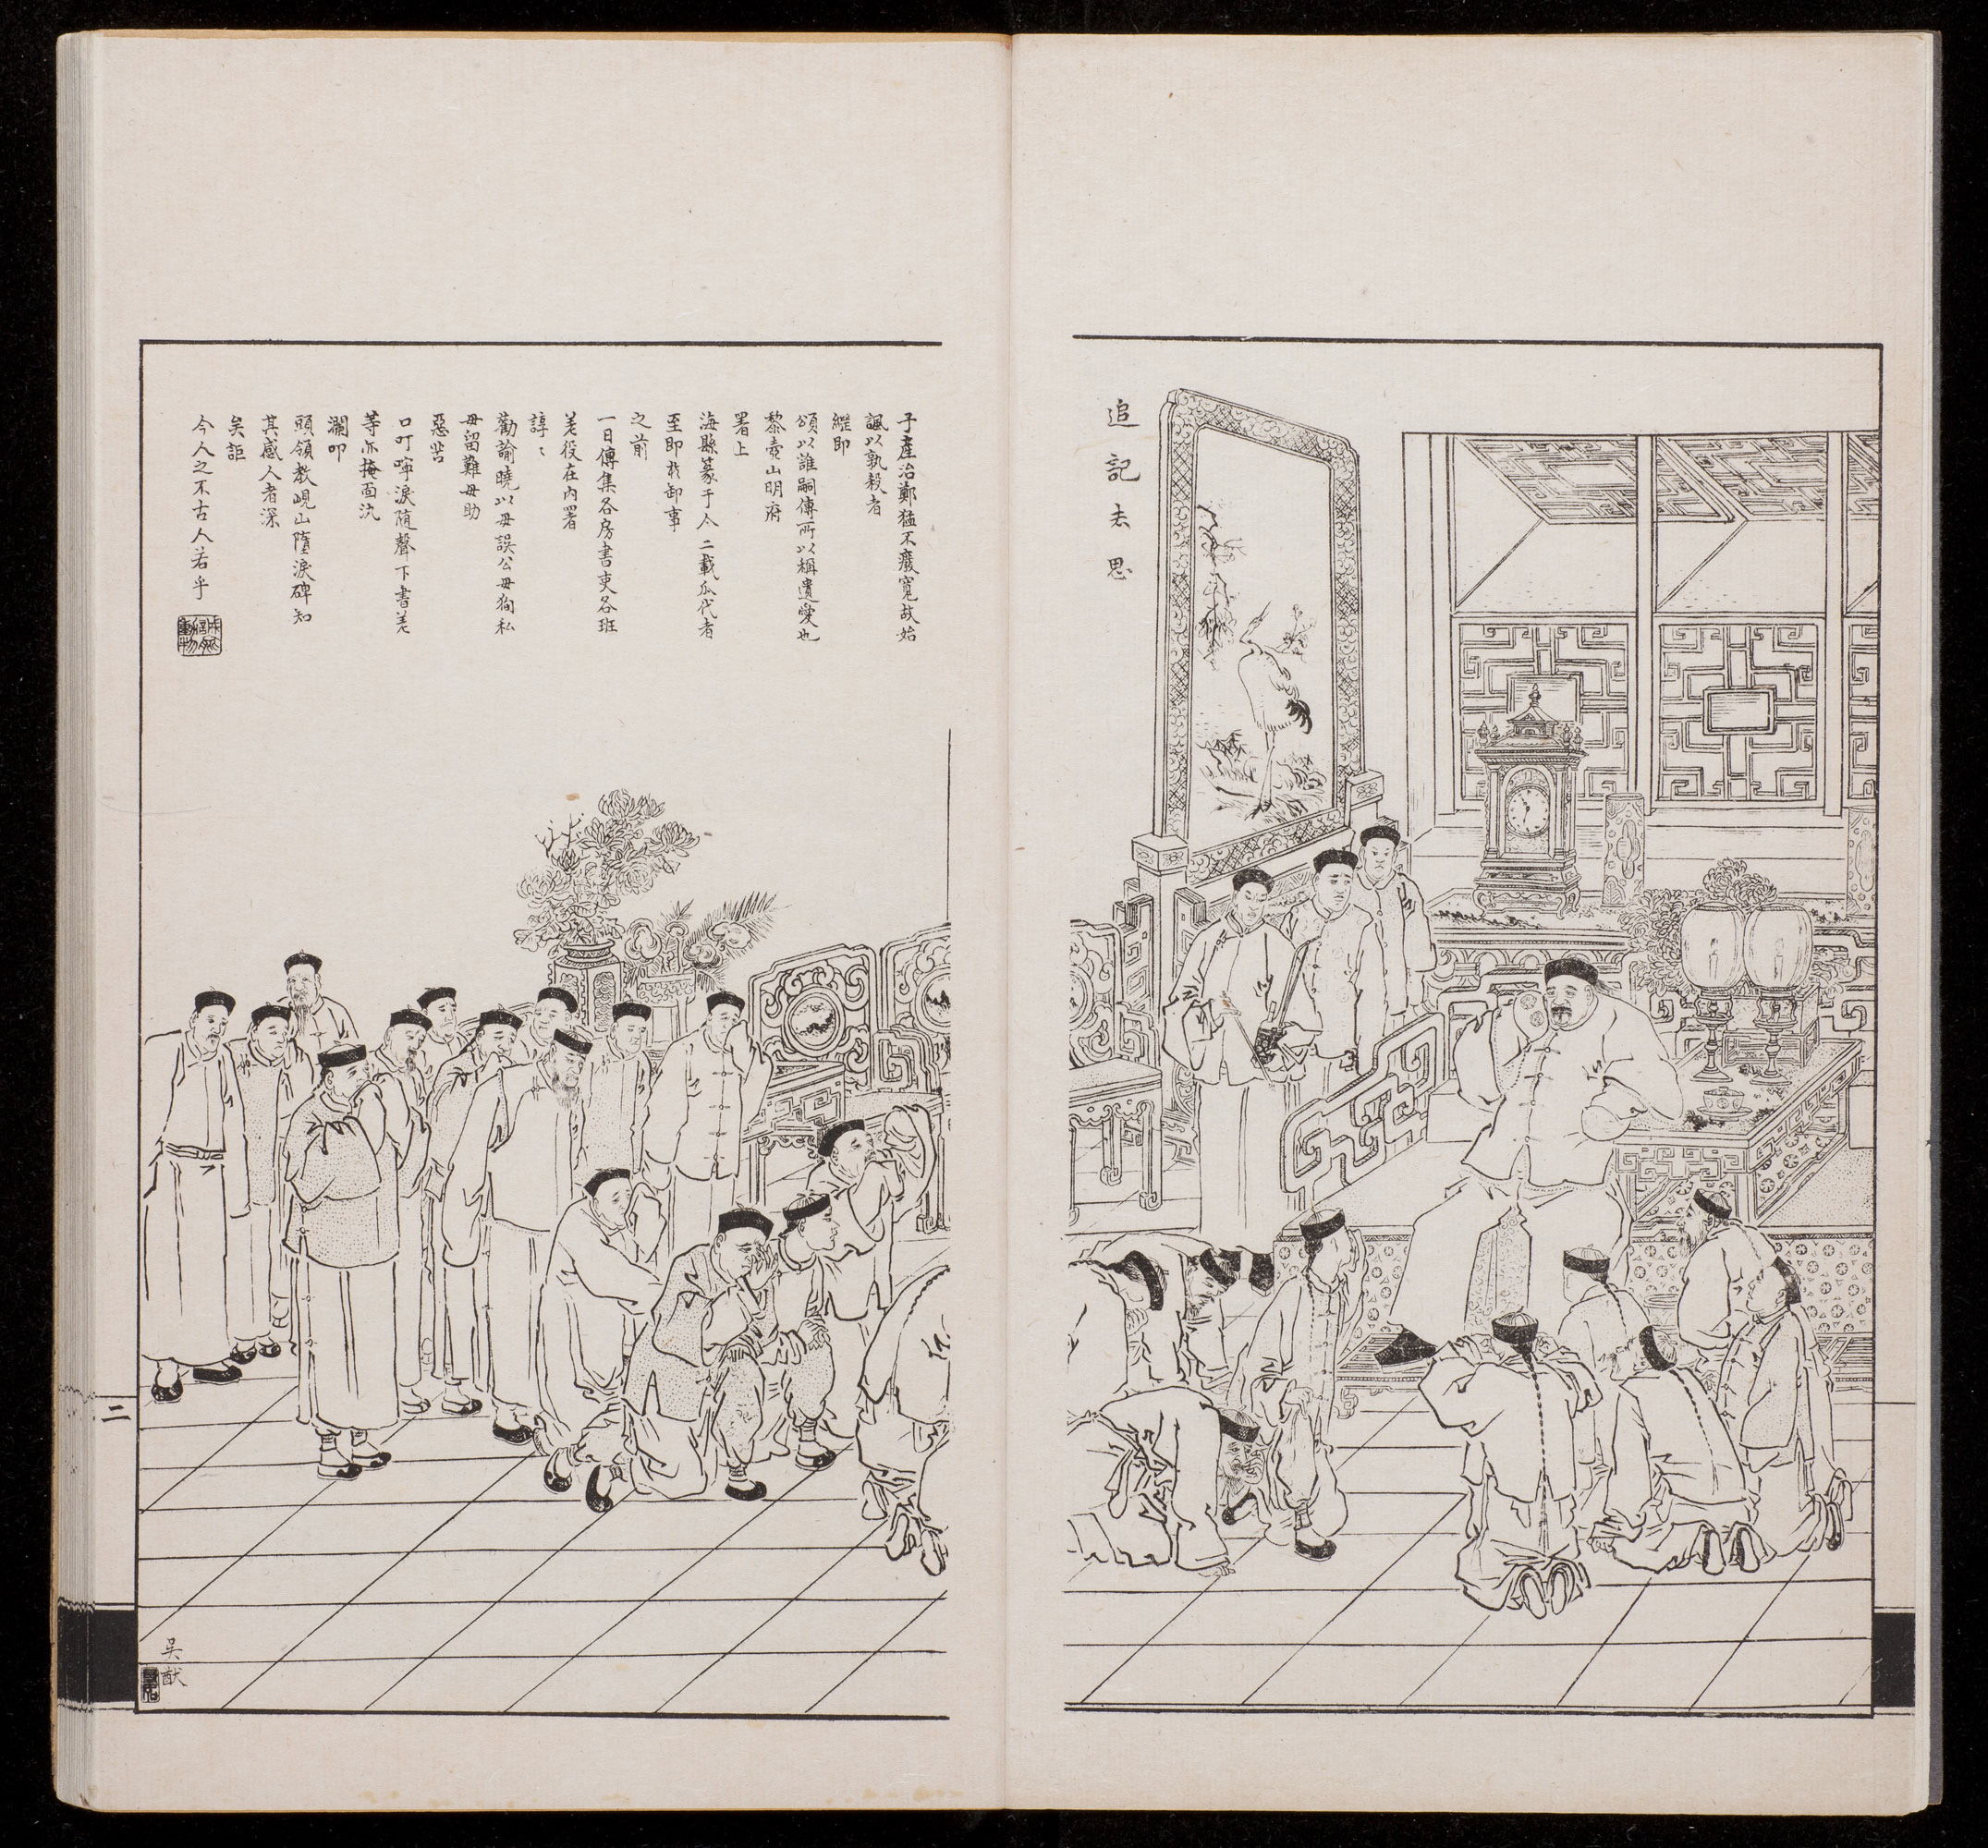 追記去思
子產治鄭猛不廢寬故始
諷以孰殺者
繼即
頌以誰嗣傳所以稱遺愛也
黎壺山明府
署上
海縣篆于今二載瓜代者
至即我卸事
之前
一日傳集各房書吏各班
差役在內署
諄〻
勸諭曉以毋誤公毋狥私
毋留難毋助
惡苦
口叮嚀淚随聲下書差
等亦掩面汍
瀾叩
頭領教峴山墮淚碑知
其感人者深
矣詎
今人之不古人若乎
二
吳猷